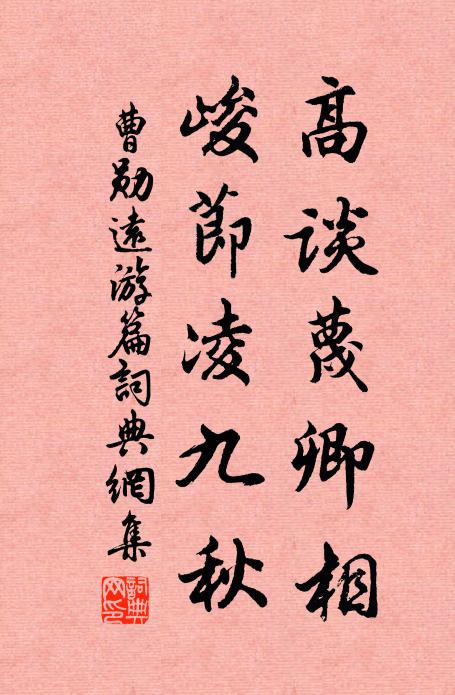 高談蔑卿相
峻節凌九秋
曹勛遠游篇詞典網集
詞典網印